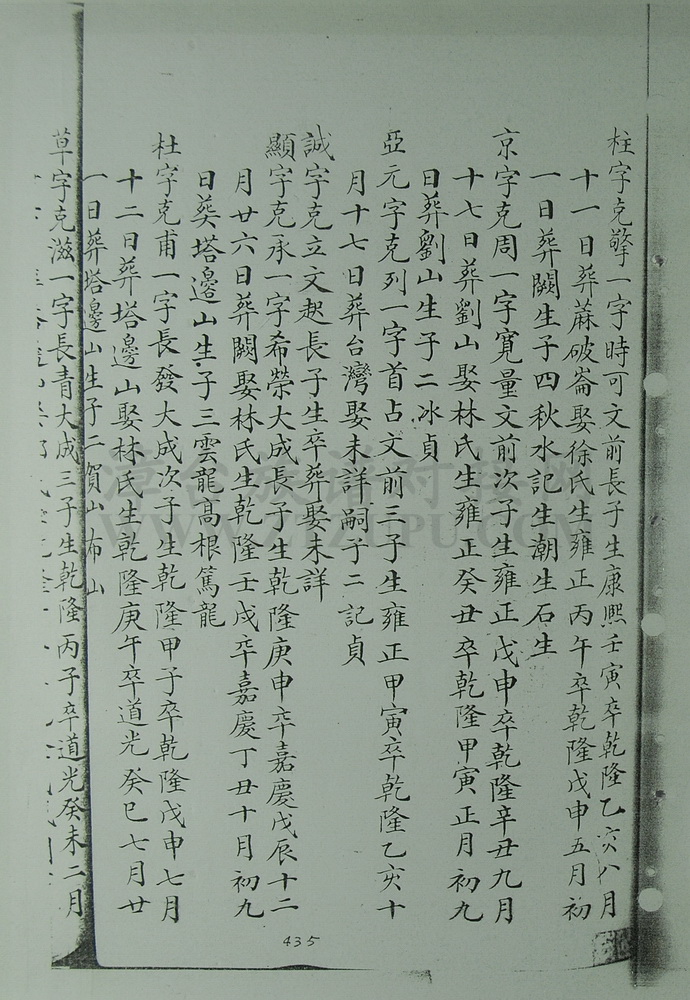 柱字克擎一字時可文前長子生康熙壬寅卒乾隆乙亥八月
十一日葬蔴破崙娶徐氏生雍正丙午卒乾隆戊申五月初
一日葬闕生子四秋水記生潮生石生
京字克周一字寬量文前次子生雍正戊申卒乾隆辛丑九月
十七日葬劉山娶林氏生雍正癸丑卒乾隆甲寅正月初九
日葬劉山生子二冰貞
亞元字克列一字首占文前三子生雍正甲寅卒乾隆乙亥十
月十七日葬台灣娶未詳嗣子二記貞
誠字克立文趂長子生卒葬娶未詳
顯字克承一字希榮大成長子生乾隆庚申卒嘉慶戊辰十二
月廿六日葬闕娶林氏生乾隆壬戌卒嘉慶丁丑十月初九
日葬塔邊山生子三雲龍高根篤龍
杜字克甫一字長發大成次子生乾隆甲子卒乾隆戊申七月
十二日葬塔邊山娶林氏生乾隆庚午卒道光癸巳七月廿
一日葬塔邊山生子二賀山布山
草字克滋一字長青大成三子生乾隆丙子卒道光癸未二月
435
漳台族譜對接網
WWW.ZTZUPU.COM